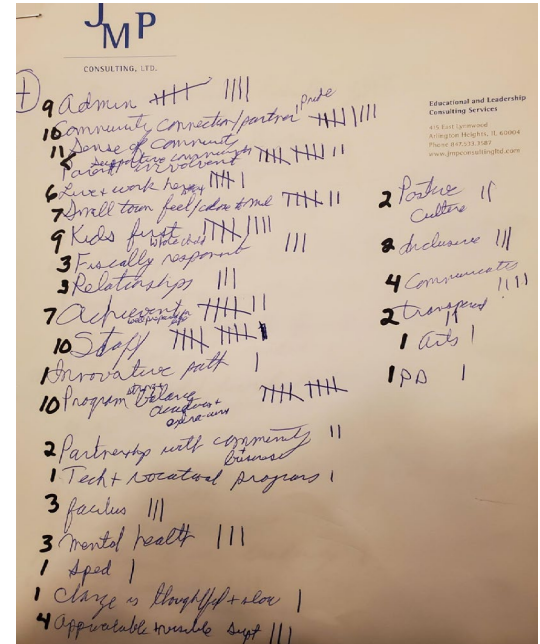 JMP
CONSULTING, LTD.
Educational and Leadership
Consulting Services
Arlington Heights, IL 60004
www.jmpconsultingltd.com
+
9 Admin
Pride
10 Community connection/partner
11 Sense of community
supportive community
5 Parent involvement
6 Live + work here
7 Small town feel/
9 Kids first
whole child
3 Fiscally
3 Relationships
7 Achievement
10 Staff
1 Innovative path
strong
10 Program balance
academics +
extra-curr
2 Partnership with community
business
1 Tech + vocational programs
3
3 mental health
1 sped
1 Change is thoughtful + slow
4 approachable + visible Supt
2 Positive
Culture
3 Inclusive
4
2
1 arts
1 PD